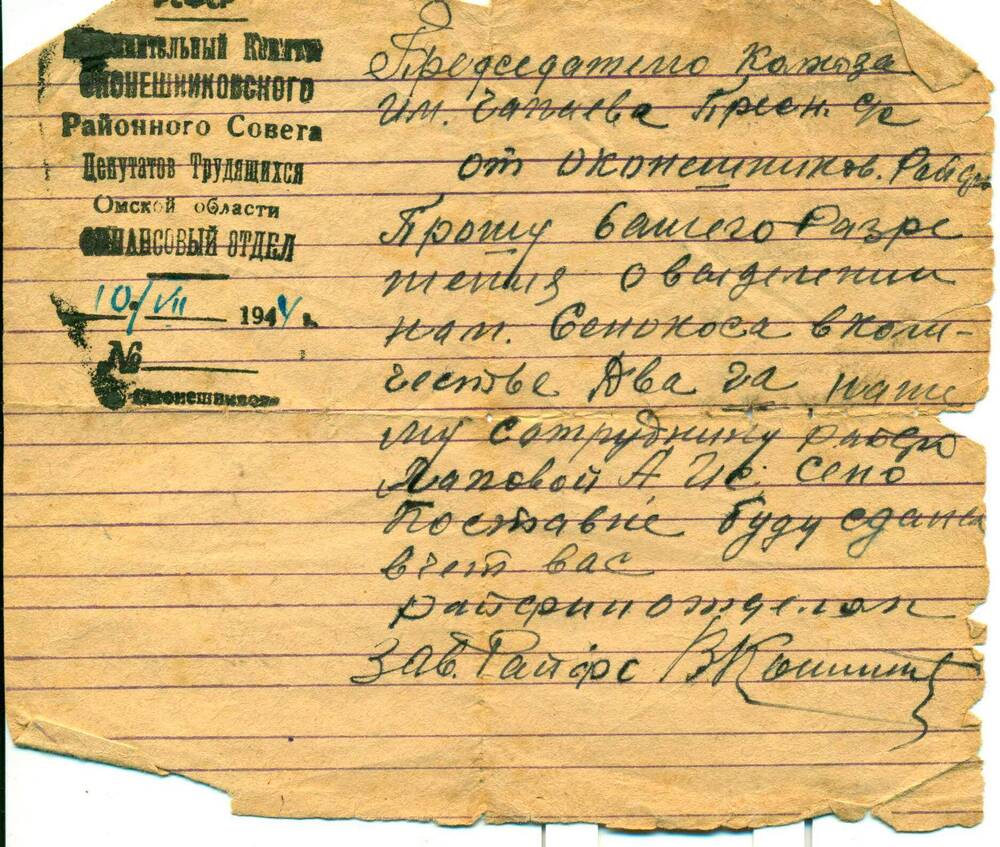 РСФСР
Исполнительный Комитет
ОКОНЕШНИКОВСКОГО
Районного Совета
Депутатов Трудящихся
Омской области
ФИНАНСОВЫЙ ОТДЕЛ
10/VII 1944 г.
№
Оконешниково
Председателю Колхоза
им. Чапаева
от Оконешников. Райфо
Прошу Вашего Разре
шения о выделении
нам. Сенокоса в коли-
честве Два га наше
му сотруднику райфо
Лаповой А Ив. Сено
Поставке буду
вчет вас
райфинотделом
Зав. Райфо